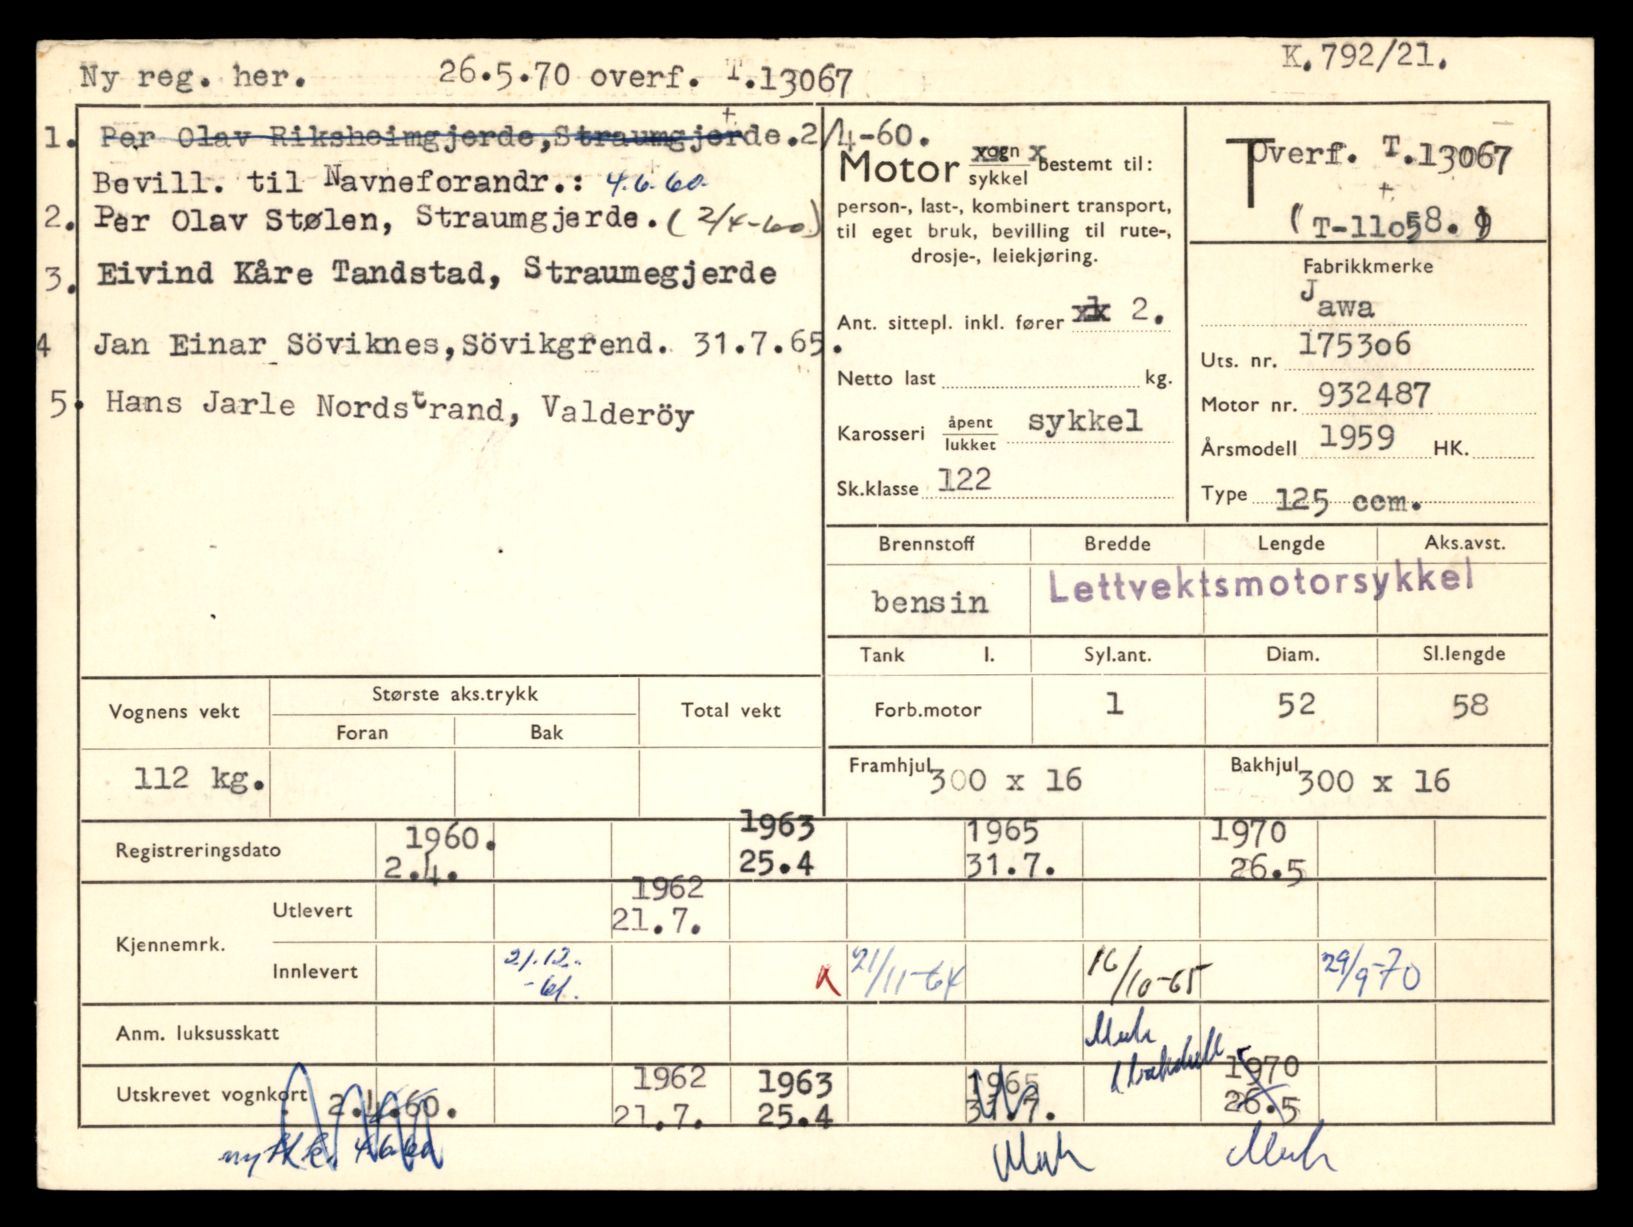 K.792/21.
Ny reg. her. 26.5.70 overf. T.13067
1. Per Olav Riksheimgjerde, Straumgjerde. 2/4-60.
Bevill. til Navneforandr.: 4.6.60.
2. Per Olav Stølen, Straumgjerde. (2/4-60)
3. Eivind Kåre Tandstad, Straumegjerde
4 Jan Einar Söviknes, Sövikgrend. 31.7.65.
5. Hans Jarle Nordstrand, Valderöy
Motor vogn bestemt til:
sykkel
person-, last-, kombinert transport,
til eget bruk, bevilling til rute-,
drosje-, leiekjøring.
Ant. sittepl. inkl. fører 2.
Netto last kg.
Karosseri åpent sykkel
lukket
Sk.klasse 122
T Overf. T.13067
(T-11058.)
Fabrikkmerke
Jawa
Uts. nr. 175306
Motor nr. 932487
Årsmodell 1959 HK.
Type 125 ccm.
Brennstoff Bredde Lengde Aks.avst.
bensin Lettvektsmotorsykkel
Tank l. Syl.ant. Diam. Sl.lengde
Forb.motor 1 52 58
Framhjul 300 x 16 Bakhjul 300 x 16
Vognens vekt Største aks.trykk Total vekt
Foran Bak
112 kg.
Registreringsdato 1960. 1963 1965 1970
2.4. 25.4 31.7. 26.5
Kjennemrk.
Utlevert 1962
21.7.
Innlevert 21.12.-61. 21/11-64 16/10-65 29/9-70
Anm. luksusskatt
Utskrevet vognkort 2.4.60. 1962 1963 1965 1970
21.7. 25.4 31.7. 26.5
4.6.60